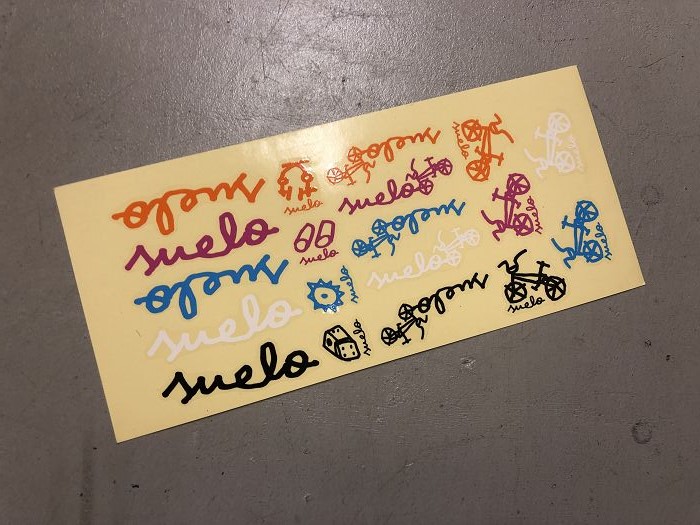 suelo
suelo
suelo
suelo
suelo
suelo
suelo
suelo
suelo
suelo
suelo
suelo
suelo
suelo
suelo
suelo
suelo
suelo
suelo